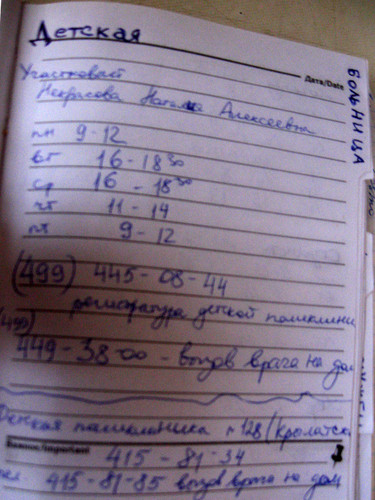 Детская
Дата/Date
БОЛЬНИЦА
Участковый
Некрасова Наталья Алексеевна
пн 9-12
вт 16-18 30
ср 16-18 30
чт 11-14
пт 9-12
(499) 445-08-44
регистратура детской поликлини
(499)
449-38-00 - вызов врача на дом
Детская поликлиника №128 (Кролатск
Важно/Important
415-81-34
415-81-85 вызов врача на дом